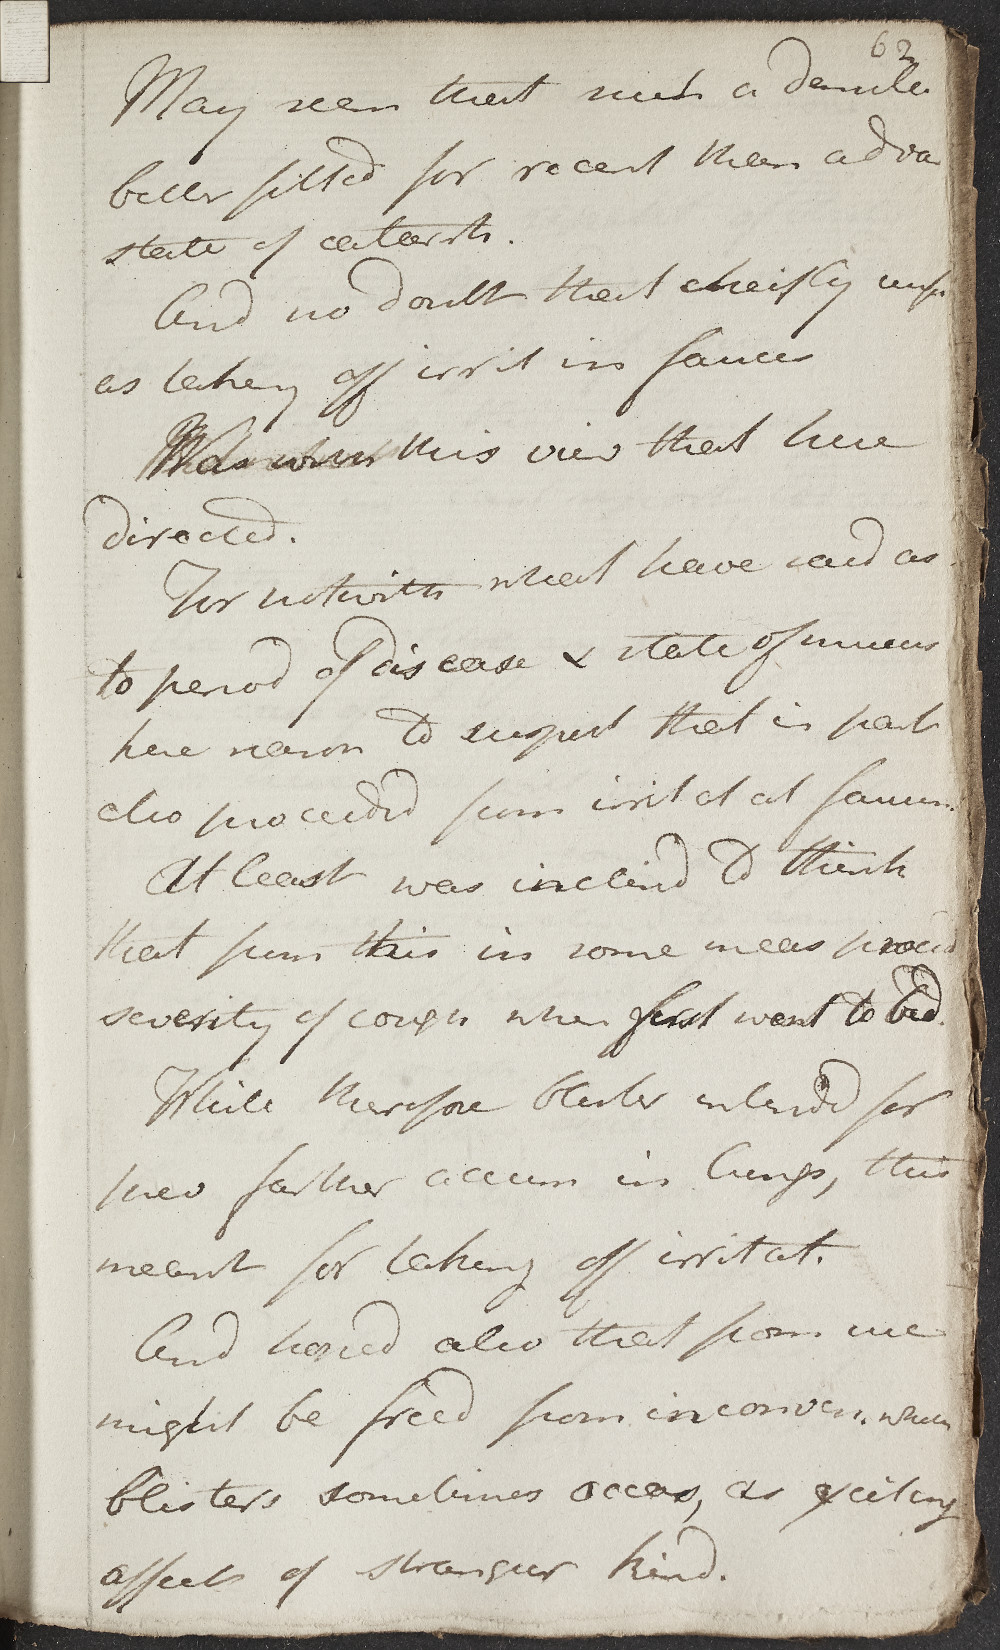 62
May seem that such a demulc
better fitted for recent than adva
state of catarrh.
And no doubt that cheifly usef
as taking off irrit in fauces
Was with this view that here
directed.
For notwith what have said as
to period of disease & state of mucus
here reason to suspect that in part
also proceeded from irritat at fauces.
At least was inclind to think
that from this in some meas proceed
severity of cough when first went to bed.
While therefore blister intended for
prev farther accum in lungs, this
meant for taking off irritat.
And hoped also that from use
might be freed from inconven. which
blisters sometimes occas, as exciting
affects of strangur kind.